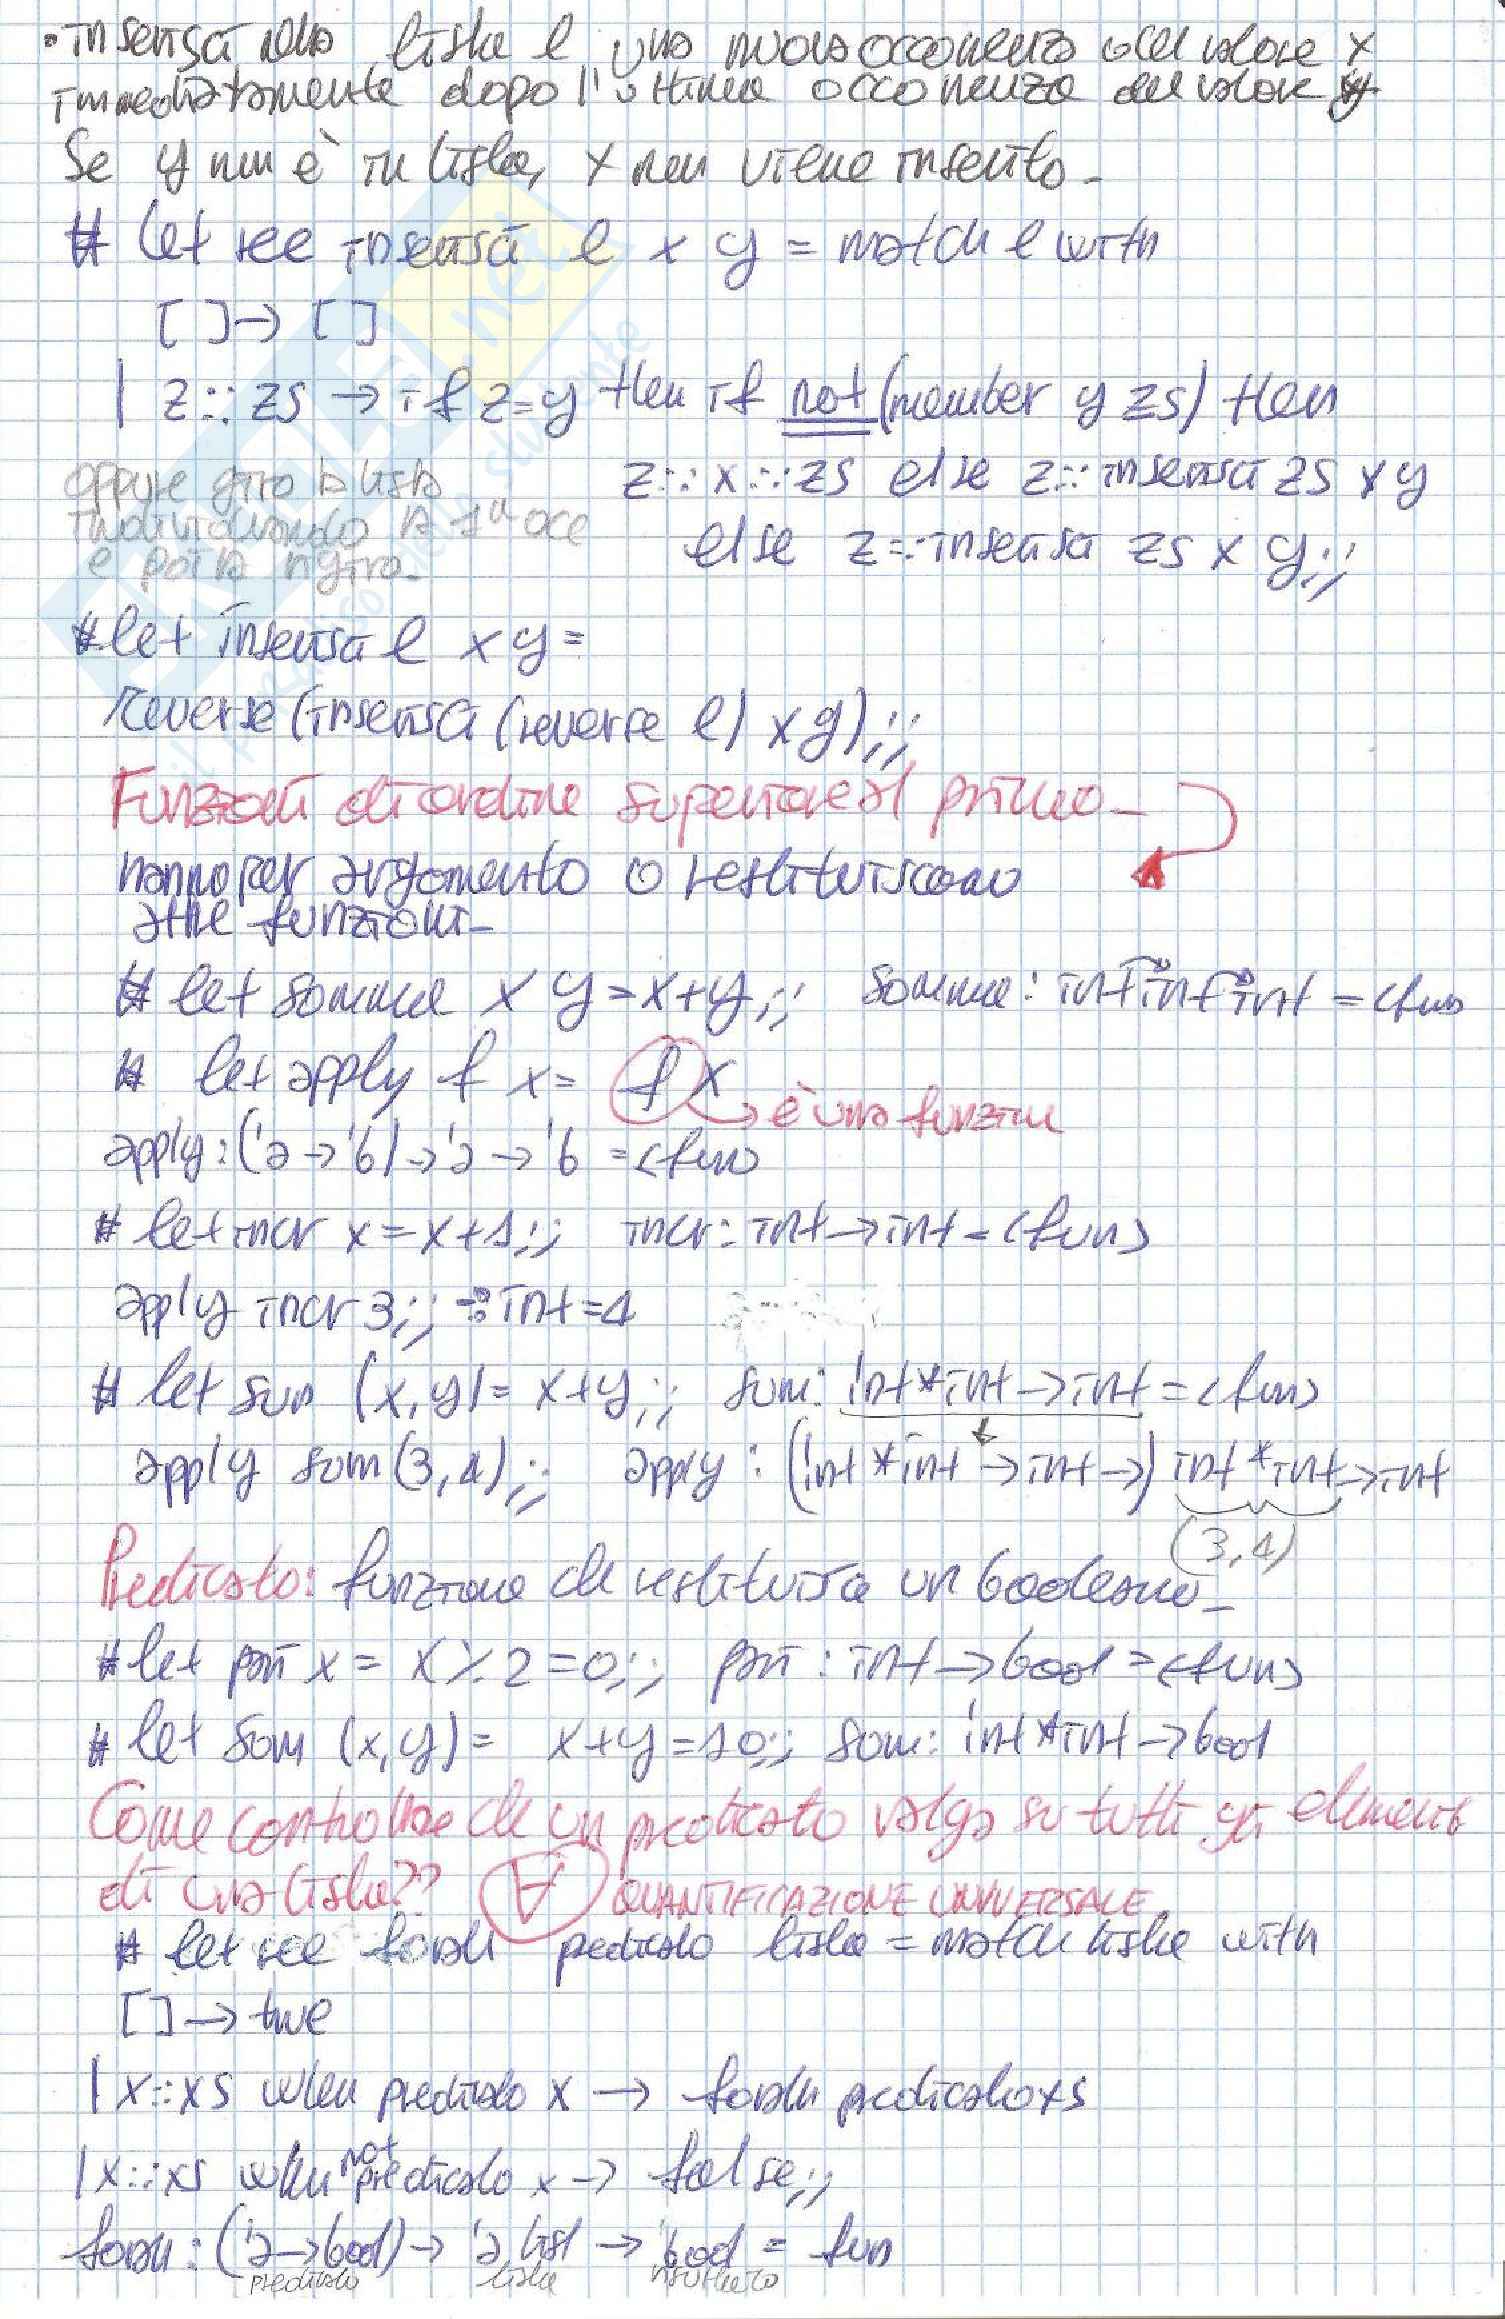 • inserisci nella lista l una nuova occorrenza del valore x
immediatamente dopo l'ultima occorrenza del valore y
Se y non è in lista, x non viene inserito_
# let rec inserisci l x y = match l with
[ ] → [ ]
| z::zs → if z=y then if not (member y zs) then
z::x::zs else z::inserisci zs x y
else z::inserisci zs x y;;
oppure giro la lista
individuando la 1ª occ
e poi la rigiro_
# let inserisci l x y =
reverse (inserisci (reverse l) x y);;
Funzioni di ordine superiore al primo_
hanno per argomento o restituiscono
altre funzioni_
# let somma x y = x+y;; somma: int→int→int = <fun>
# let apply f x = f x
→ è una funzione
apply: ('a → 'b) → 'a → 'b = <fun>
# let incr x = x+1;; incr: int → int = <fun>
apply incr 3;; -: int = 4
# let som (x,y) = x+y;; som: int*int → int = <fun>
apply som (3,4);; apply: (int*int → int →) int*int → int
(3,4)
Predicato: funzione che restituisce un booleano_
# let pari x = x % 2 = 0;; pari: int → bool = <fun>
# let som (x,y) = x+y=10;; som: int*int → bool
Come controllare che un predicato valga su tutti gli elementi
di una lista?? ∀ QUANTIFICAZIONE UNIVERSALE
# let rec forall predicato lista = match lista with
[ ] → true
| x::xs when predicato x → forall predicato xs
| x::xs when not predicato x → false;;
forall: ('a → bool) → 'a list → 'bool = fun
predicato lista risultato